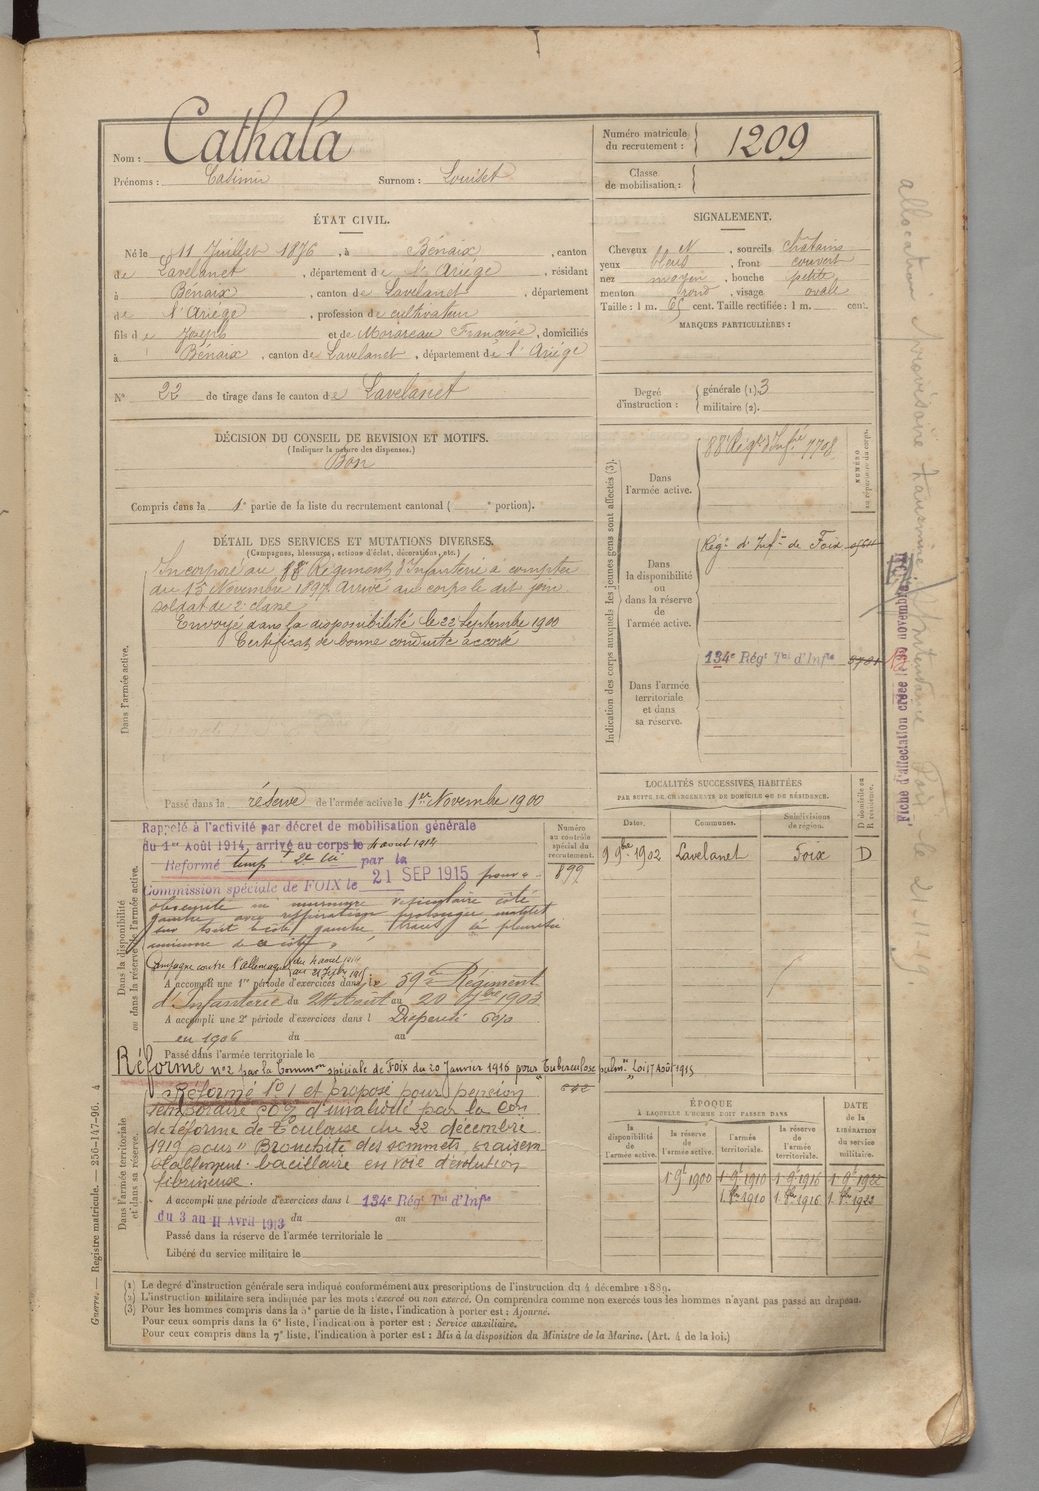 Nom : Cathala
Prénoms : Casimir Surnom : Louiset
Numéro matricule du recrutement : 1209
Classe de mobilisation :
ÉTAT CIVIL.
Né le 11 Juillet 1876, à Bénaix, canton
de Lavelanet, département de l'Ariège, résidant
à Bénaix, canton de Lavelanet, département
de l'Ariège, profession de cultivateur
fils de Joseph et de Françoise, domiciliés
à Bénaix, canton de Lavelanet, département de l'Ariège
N° 22 de tirage dans le canton de Lavelanet
SIGNALEMENT.
Cheveux N, sourcils chatains
yeux bleus, front couvert
nez moyen, bouche petite
menton rond, visage ovale
Taille : 1 m. 65 cent. Taille rectifiée : 1 m. cent.
MARQUES PARTICULIÈRES :
Degré d'instruction : générale (1). 3
militaire (2).
DÉCISION DU CONSEIL DE REVISION ET MOTIFS.
(Indiquer la nature des dispenses.)
Bon
Compris dans la 1e partie de la liste du recrutement cantonal ( e portion).
DÉTAIL DES SERVICES ET MUTATIONS DIVERSES.
(Campagnes, blessures, actions d'éclat, décorations, etc.)
Dans l'armée active.
Incorporé au Régiment d'Infanterie à compter
du 13 Novembre 1897. Arrivé au corps le dit jour
soldat de 2e classe
Envoyé dans la disponibilité le 22 Septembre 1900
Certificat de bonne conduite accordé
Passé dans la réserve de l'armée active le 1er Novembre 1900
Indication des corps auxquels les jeunes gens sont affectés (3).
NUMÉRO au répertoire du corps.
Dans l'armée active.
88e Régt d'Infie 7708
Dans la disponibilité ou dans la réserve de l'armée active.
Régt d'Infie de Foix
Dans l'armée territoriale et dans sa réserve.
134e Régt Tal d'Infie
Fiche d'affectation créée le 30 novembre
allocation provisoire
Foix le 21-11-19
LOCALITÉS SUCCESSIVES HABITÉES
PAR SUITE DE CHANGEMENTS DE DOMICILE OU DE RÉSIDENCE.
Dates. Communes. Subdivisions de région. D domicile ou R résidence.
9 9bre 1902 Lavelanet Foix D
Dans la disponibilité ou dans la réserve de l'armée active.
Numéro au contrôle spécial du recrutement.
899
Rappelé à l'activité par décret de mobilisation générale
du 1er Août 1914, arrivé au corps le 4 aout 1914
Réformé tempt par la
Commission spéciale de FOIX le 21 SEP 1915 pour :
obscurité du murmure vésiculaire côté
gauche avec respiration prolongée
sur tout le côté gauche, traces de pleurésie
ancienne de ce côté
Campagne contre l'allemagne du 4 aout 1914
au 21 Septbre 1915
A accompli une 1re période d'exercices dans le 59e Régiment
d'Infanterie du 24 Aout au 20 7bre 1903
A accompli une 2e période d'exercices dans l Dispensé
en 1906 du au
Passé dans l'armée territoriale le
Réformé n°2 par la Common spéciale de Foix du 20 Janvier 1916 pour "Tuberculose pulmre" Loi 17 Août 1915
Dans l'armée territoriale et dans sa réserve.
Réformé N°1 et proposé pour pension
temporaire 60% d'invalidité par la Con
de réforme de Toulouse du 22 décembre
1919 pour "Bronchite des sommets vraisem
blablement bacillaire en voie d'évolution
fibrineuse.
A accompli une période d'exercices dans l 134e Régt Tal d'Infie
du 3 au 11 Avril 1913 du au
Passé dans la réserve de l'armée territoriale le
Libéré du service militaire le
ÉPOQUE
À LAQUELLE L'HOMME DOIT PASSER DANS
la disponibilité de l'armée active. la réserve de l'armée active. l'armée territoriale. la réserve de l'armée territoriale.
DATE de la LIBÉRATION du service militaire.
1 9bre 1900 1 9bre 1910 1 9bre 1916 1 9bre 1922
1. 8bre 1910 1. 8bre 1916 1. 8bre 1922
(1) Le degré d'instruction générale sera indiqué conformément aux prescriptions de l'instruction du 4 décembre 1889.
(2) L'instruction militaire sera indiquée par les mots : exercé ou non exercé. On comprendra comme non exercés tous les hommes n'ayant pas passé au drapeau.
(3) Pour les hommes compris dans la 5e partie de la liste, l'indication à porter est : Ajourné.
Pour ceux compris dans la 6e liste, l'indication à porter est : Service auxiliaire.
Pour ceux compris dans la 7e liste, l'indication à porter est : Mis à la disposition du Ministre de la Marine. (Art. 4 de la loi.)
Guerre. — Registre matricule. — 256-147-96. 4